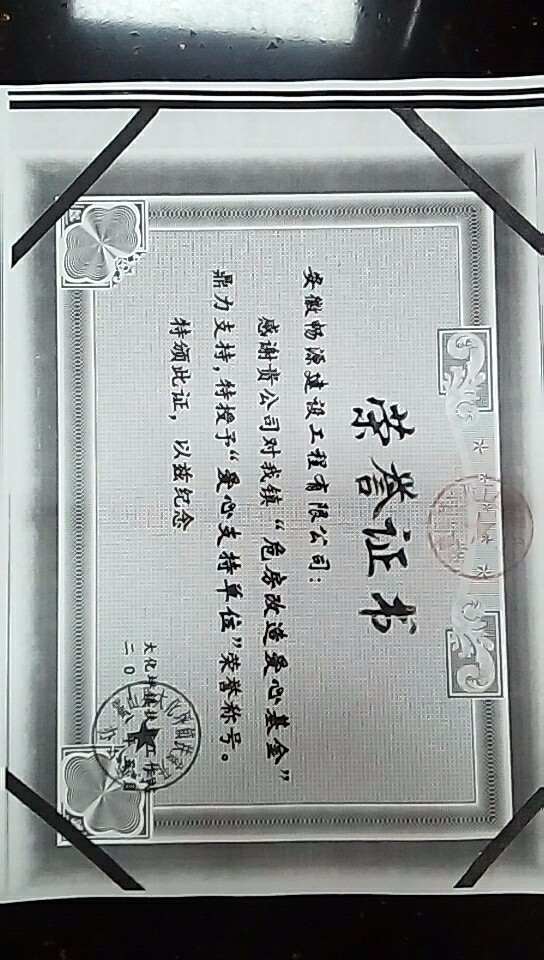 荣誉证书
安徽畅源建设工程有限公司：
感谢贵公司对我镇“危房改造爱心基金”
鼎力支持，特授予“爱心支持单位”荣誉称号。
特颁此证，以兹纪念
大化坪镇
二〇